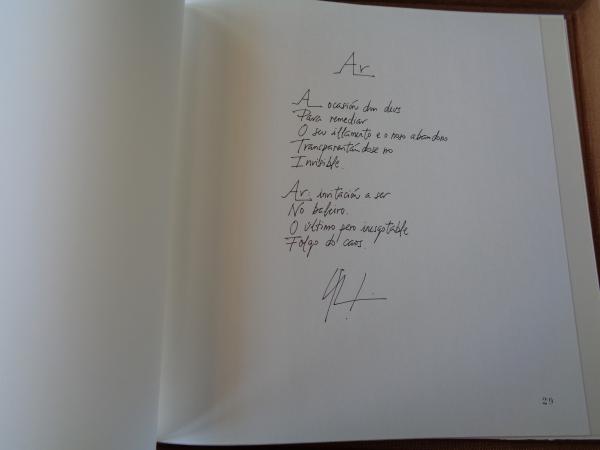 Ar
A ocasión dun deus
Para remediar
O seu illamento e o noso abandono
Transparentándose no
Invisible.
Ar: invitación a ser
No baleiro.
O último pero inesgotable
Folgo do caos.
29